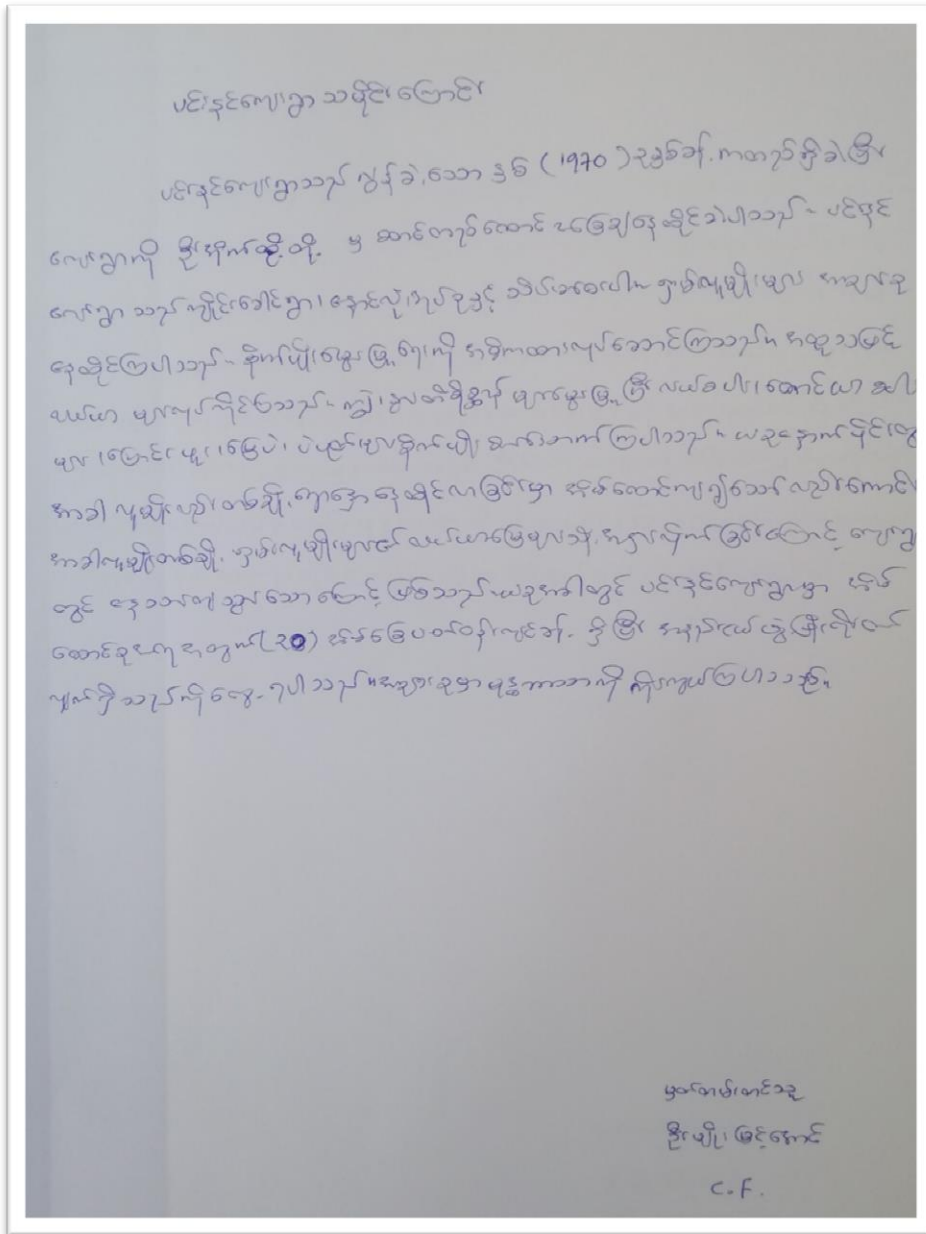 ပင်းနင်ကျေးရွာ သမိုင်းကြောင်း
ပင်းနင်ကျေးရွာသည် လွန်ခဲ့သော နှစ် (1970) ခုနှစ်ခန့်ကတည်ရှိခဲ့ပြီး
ကျေးရွာကို ဦးအိုက်ထွန်းတို့ မှ ဆောင်တည်ထောင် အခြေချနေထိုင်ခဲ့ပါသည်။ ပင်းနင်
ကျေးရွာ သည် ကျိုင်းခေါင်ရွာ၊ နောင်လုံအုပ်စုနှင့် သိပ်မဝေးပါ။ ရှမ်းလူမျိုးများ အများစု
နေထိုင်ကြပါသည်။ စိုက်ပျိုးမွေးမြူရေးကို အဓိကထားလုပ်ဆောင်ကြသည်။ အထူးသဖြင့်
လယ်ယာ များလုပ်ကိုင်ကြသည်။ ကျွဲ၊ နွားတိရိစ္ဆာန် များမွေးမြူပြီး လယ်စပါး၊ တောင်ယာ စပါး
များ၊ ပြောင်းဖူး၊ မြေပဲ၊ ပဲပုပ်များစိုက်ပျိုး စားသောက်ကြပါသည်။ ယခုနောက်ပိုင်းတွင်
အာခါ လူမျိုးလည်းတစ်ချို့ရောနှောနေထိုင်လာခြင်းမှာ အိမ်ထောင်ကျ၍သော်လည်းကောင်း
အာခါလူမျိုးတစ်ချို့ ရှမ်းလူမျိုးများ၏ လယ်ယာမြေများသို့ အငှားလိုက်ခြင်းကြောင့် ကျေးရွာ
တွင် နေသားကျသွားသောကြောင့် ဖြစ်သည်။ ယခုအခါတွင် ပင်းနင်ကျေးရွာမှာ အိမ်
ထောင်စုအရအတွက် (20) အိမ်ခြေပတ်ဝန်းကျင်ခန့် ရှိပြီး အနည်းငယ်ဖွံ့ဖြိုးတိုးတက်
လျက်ရှိသည်ကိုတွေ့ရပါသည်။ အများစုမှာ ဗုဒ္ဓဘာသာကို ကိုးကွယ်ကြပါသည်။
မှတ်တမ်းတင်သူ
ဦးမျိုးမြင့်အောင်
C.F.